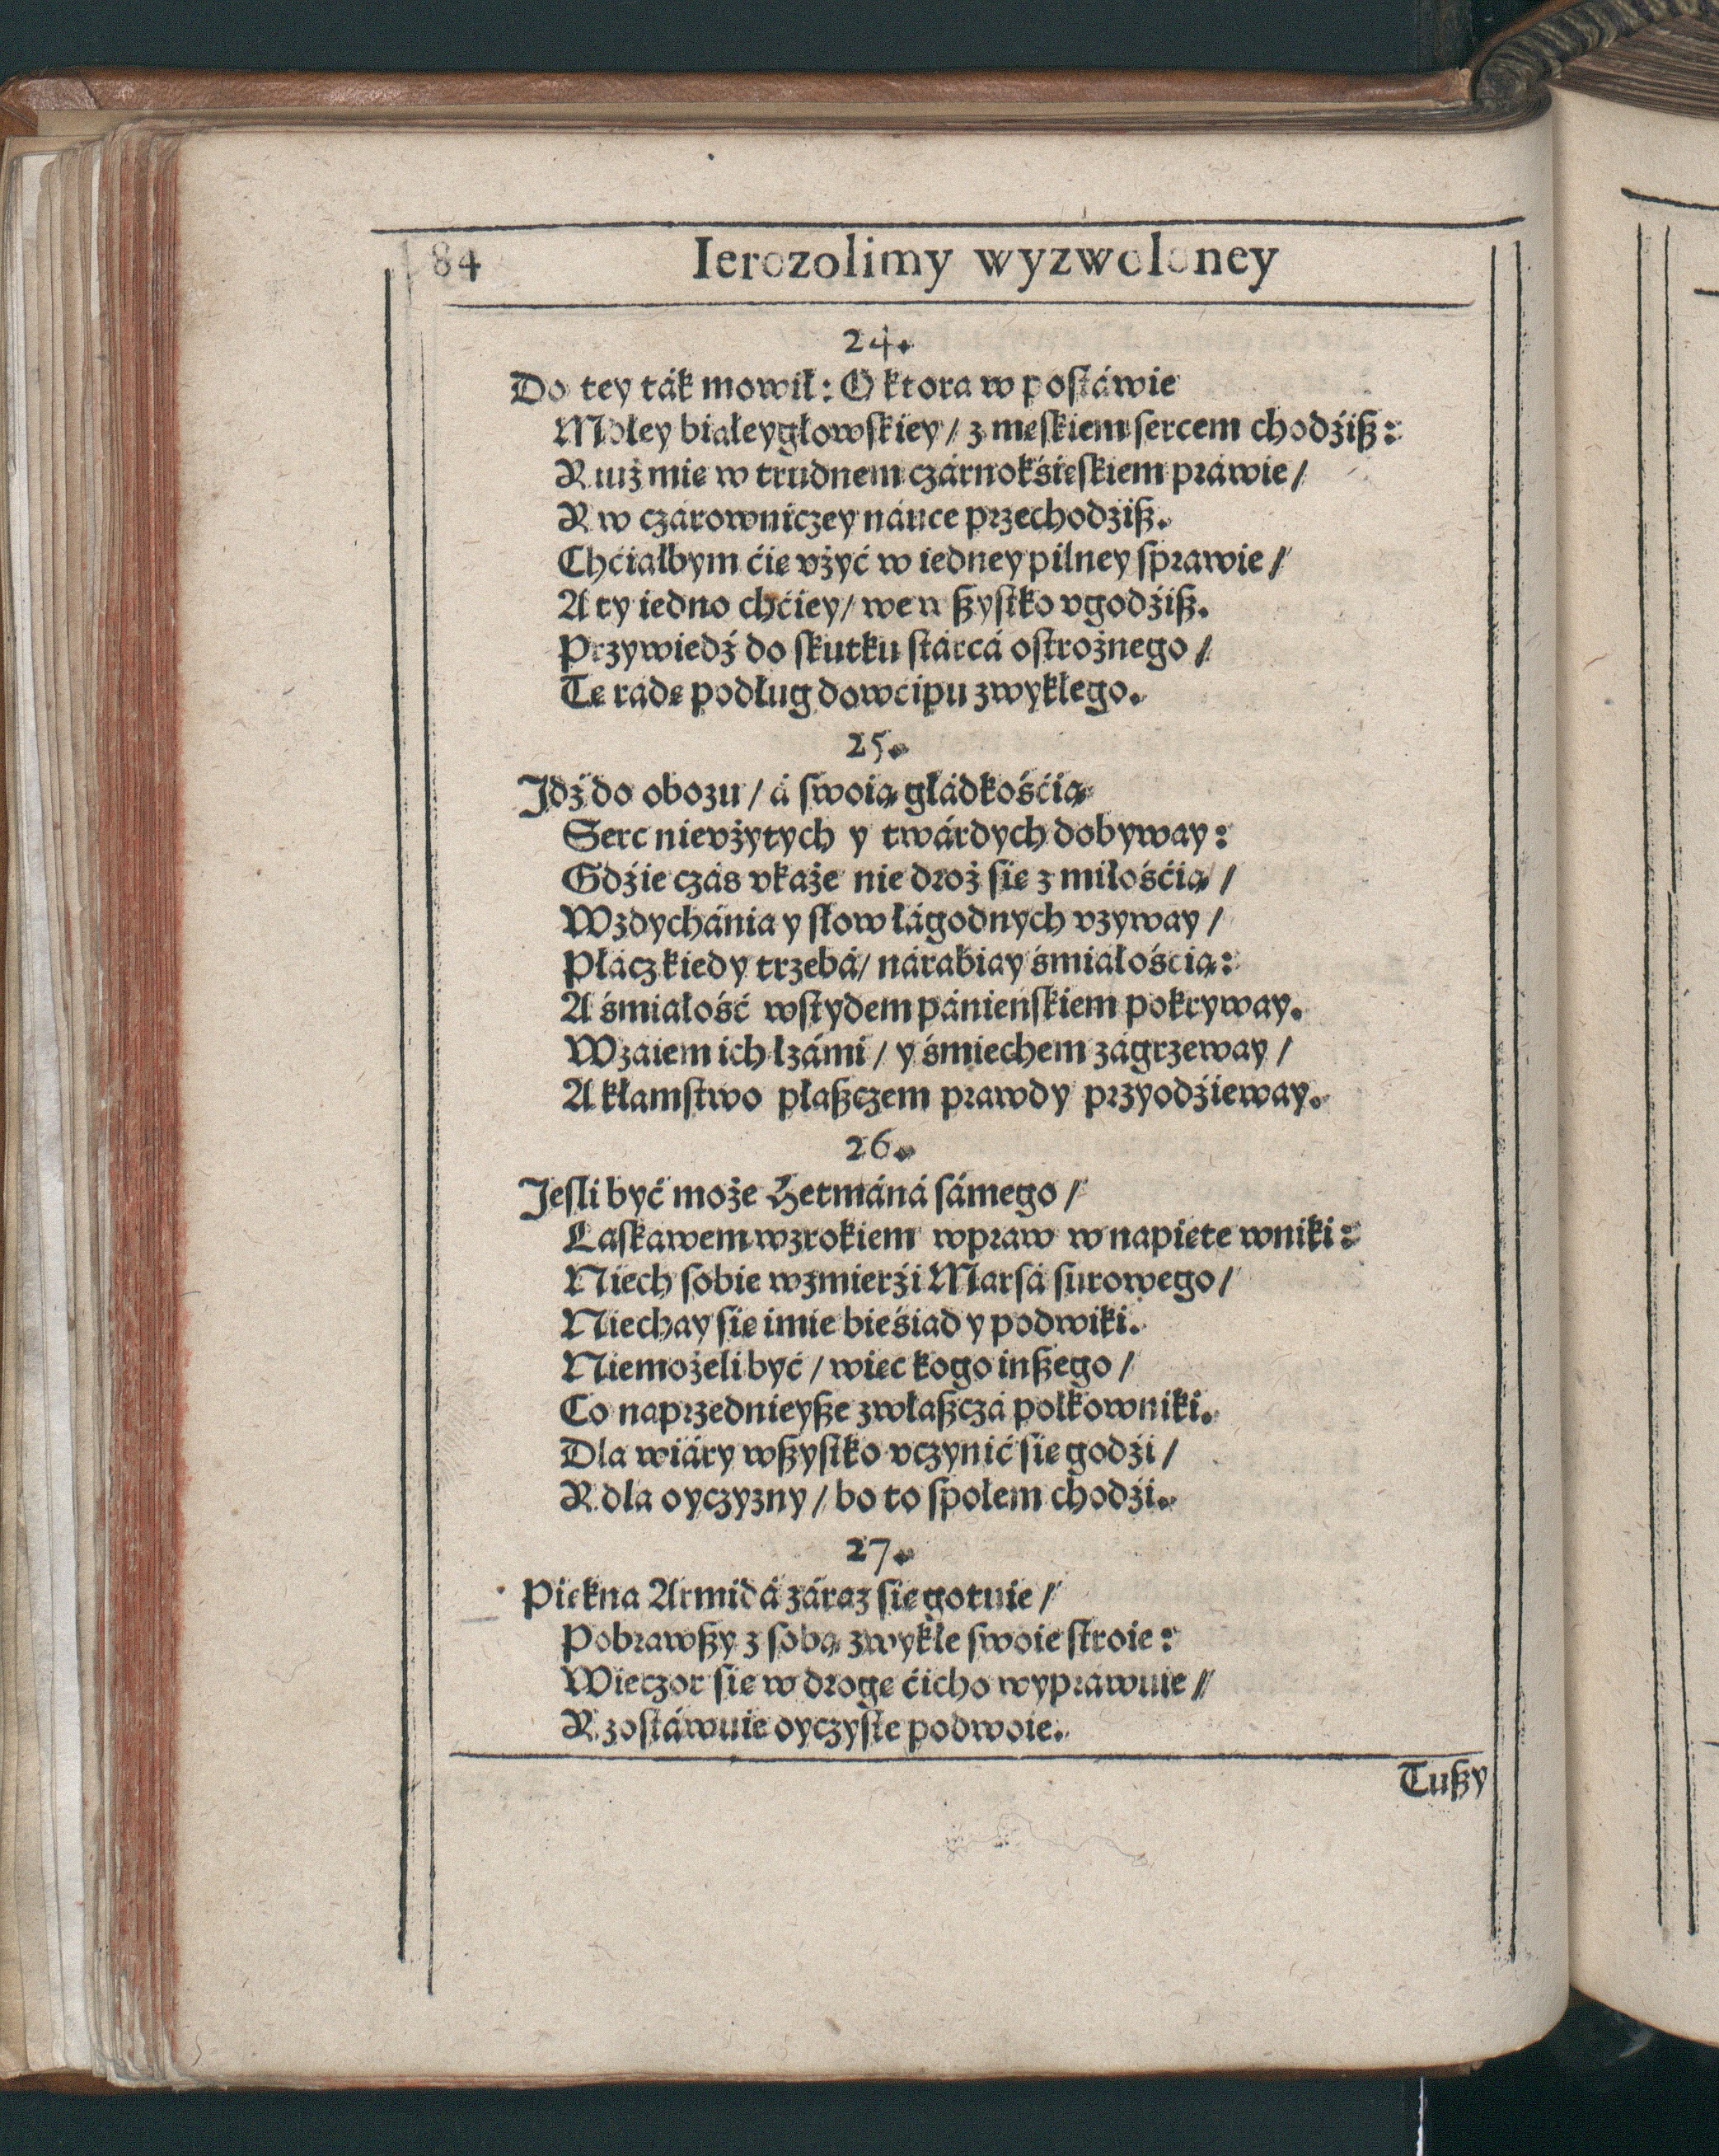 84 Ierozolimy wyzwoloney
24.
Do tey ták mowił: O ktora w postáwie
Mdłey białeygłowskiey/ z męskiem sercem chodźisz:
Y iuż mię w trudnem czárnokśięskiem práwie/
Y w czárowniczey náuce przechodźisz.
Chćiałbym ćię vżyć w iedney pilney sprawie/
A ty iedno chćiey/ we wszystko vgodźisz.
Przywiedź do skutku stárcá ostrożnego/
Tę rádę podług dowćipu zwykłego.
25.
Idź do obozu/ á swoią głádkośćią
Serc nievżytych y twárdych dobyway:
Gdźie czás vkaże nie droż się z miłośćią/
Wzdychánia y słow łágodnych vzyway/
Płácz kiedy trzebá/ nárabiay śmiałośćią:
A śmiałość wstydem pánieńskiem pokryway.
Wzaiem ich łzámi/ y śmiechem zágrzeway/
A kłamstwo płaszczem prawdy przyodźieway.
26.
Iesli być może Hetmáná sámego/
Łaskawem wzrokiem wpraw w napięte wniki:
Niech sobie wzmierźi Marsá surowego/
Niechay się imie bieśiad y podwiki.
Niemożeli być/ więc kogo inszego/
Co naprzednieysze zwłaszczá połkowniki.
Dla wiáry wszystko vczynić się godźi/
Y dla oyczyzny/ bo to społem chodźi.
27.
Piękna Armidá záraz się gotuie/
Pobrawszy z sobą zwykłe swoie stroie:
Wieczor się w drogę ćicho wypráwuie/
Y zostáwuie oyczyste podwoie.
Tuszy